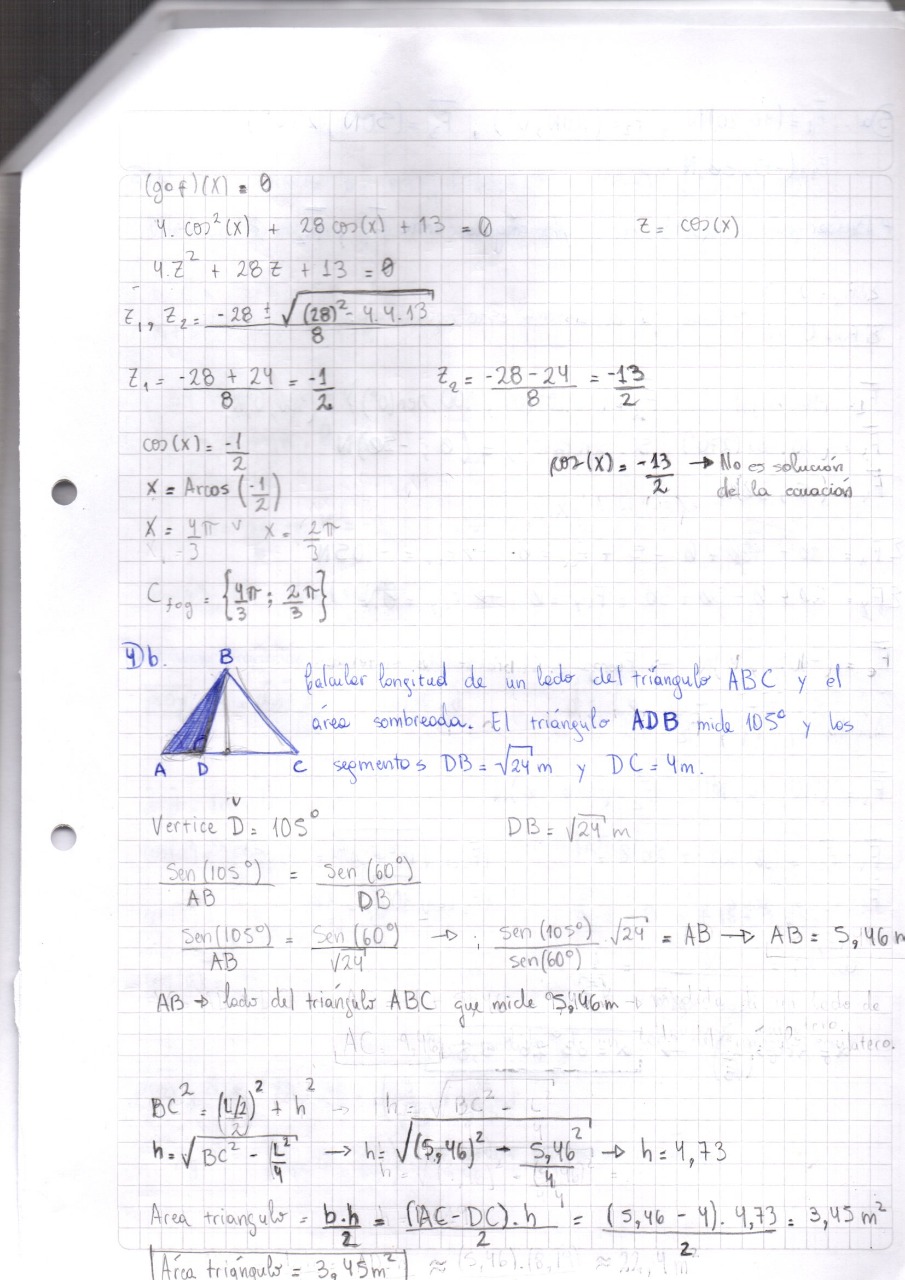 (gof)(x) = 0
4. cos²(x) + 28 cos(x) + 13 = 0 z = cos(x)
4.z² + 28z + 13 = 0
z₁, z₂ = -28 ± √((28)² - 4.4.13) / 8
z₁ = -28 + 24 / 8 = -1/2 z₂ = -28 - 24 / 8 = -13/2
cos(x) = -1/2
cos(x) = -13/2 → No es solución
de la ecuación
x = Arcos(-1/2)
x = 4π/3 v x = 2π/3
C fog = {4π/3 ; 2π/3}
4)b.
B
A D C
Calcular longitud de un lado del triángulo ABC y el
área sombreada. El triángulo ADB mide 105° y los
segmentos DB = √24 m y DC = 4m.
Vertice D = 105° DB = √24 m
Sen(105°)/AB = Sen(60°)/DB
Sen(105°)/AB = Sen(60°)/√24 → Sen(105°)/sen(60°) . √24 = AB → AB = 5,46 m
AB → lado del triángulo ABC que mide 5,46m
BC² = (L/2)² + h²
h = √(BC² - L²/4) → h = √((5,46)² - 5,46²/4) → h = 4,73
Area triangulo = b.h/2 = (AC-DC).h/2 = (5,46 - 4). 4,73/2 = 3,45 m²
Área triángulo = 3,45m²